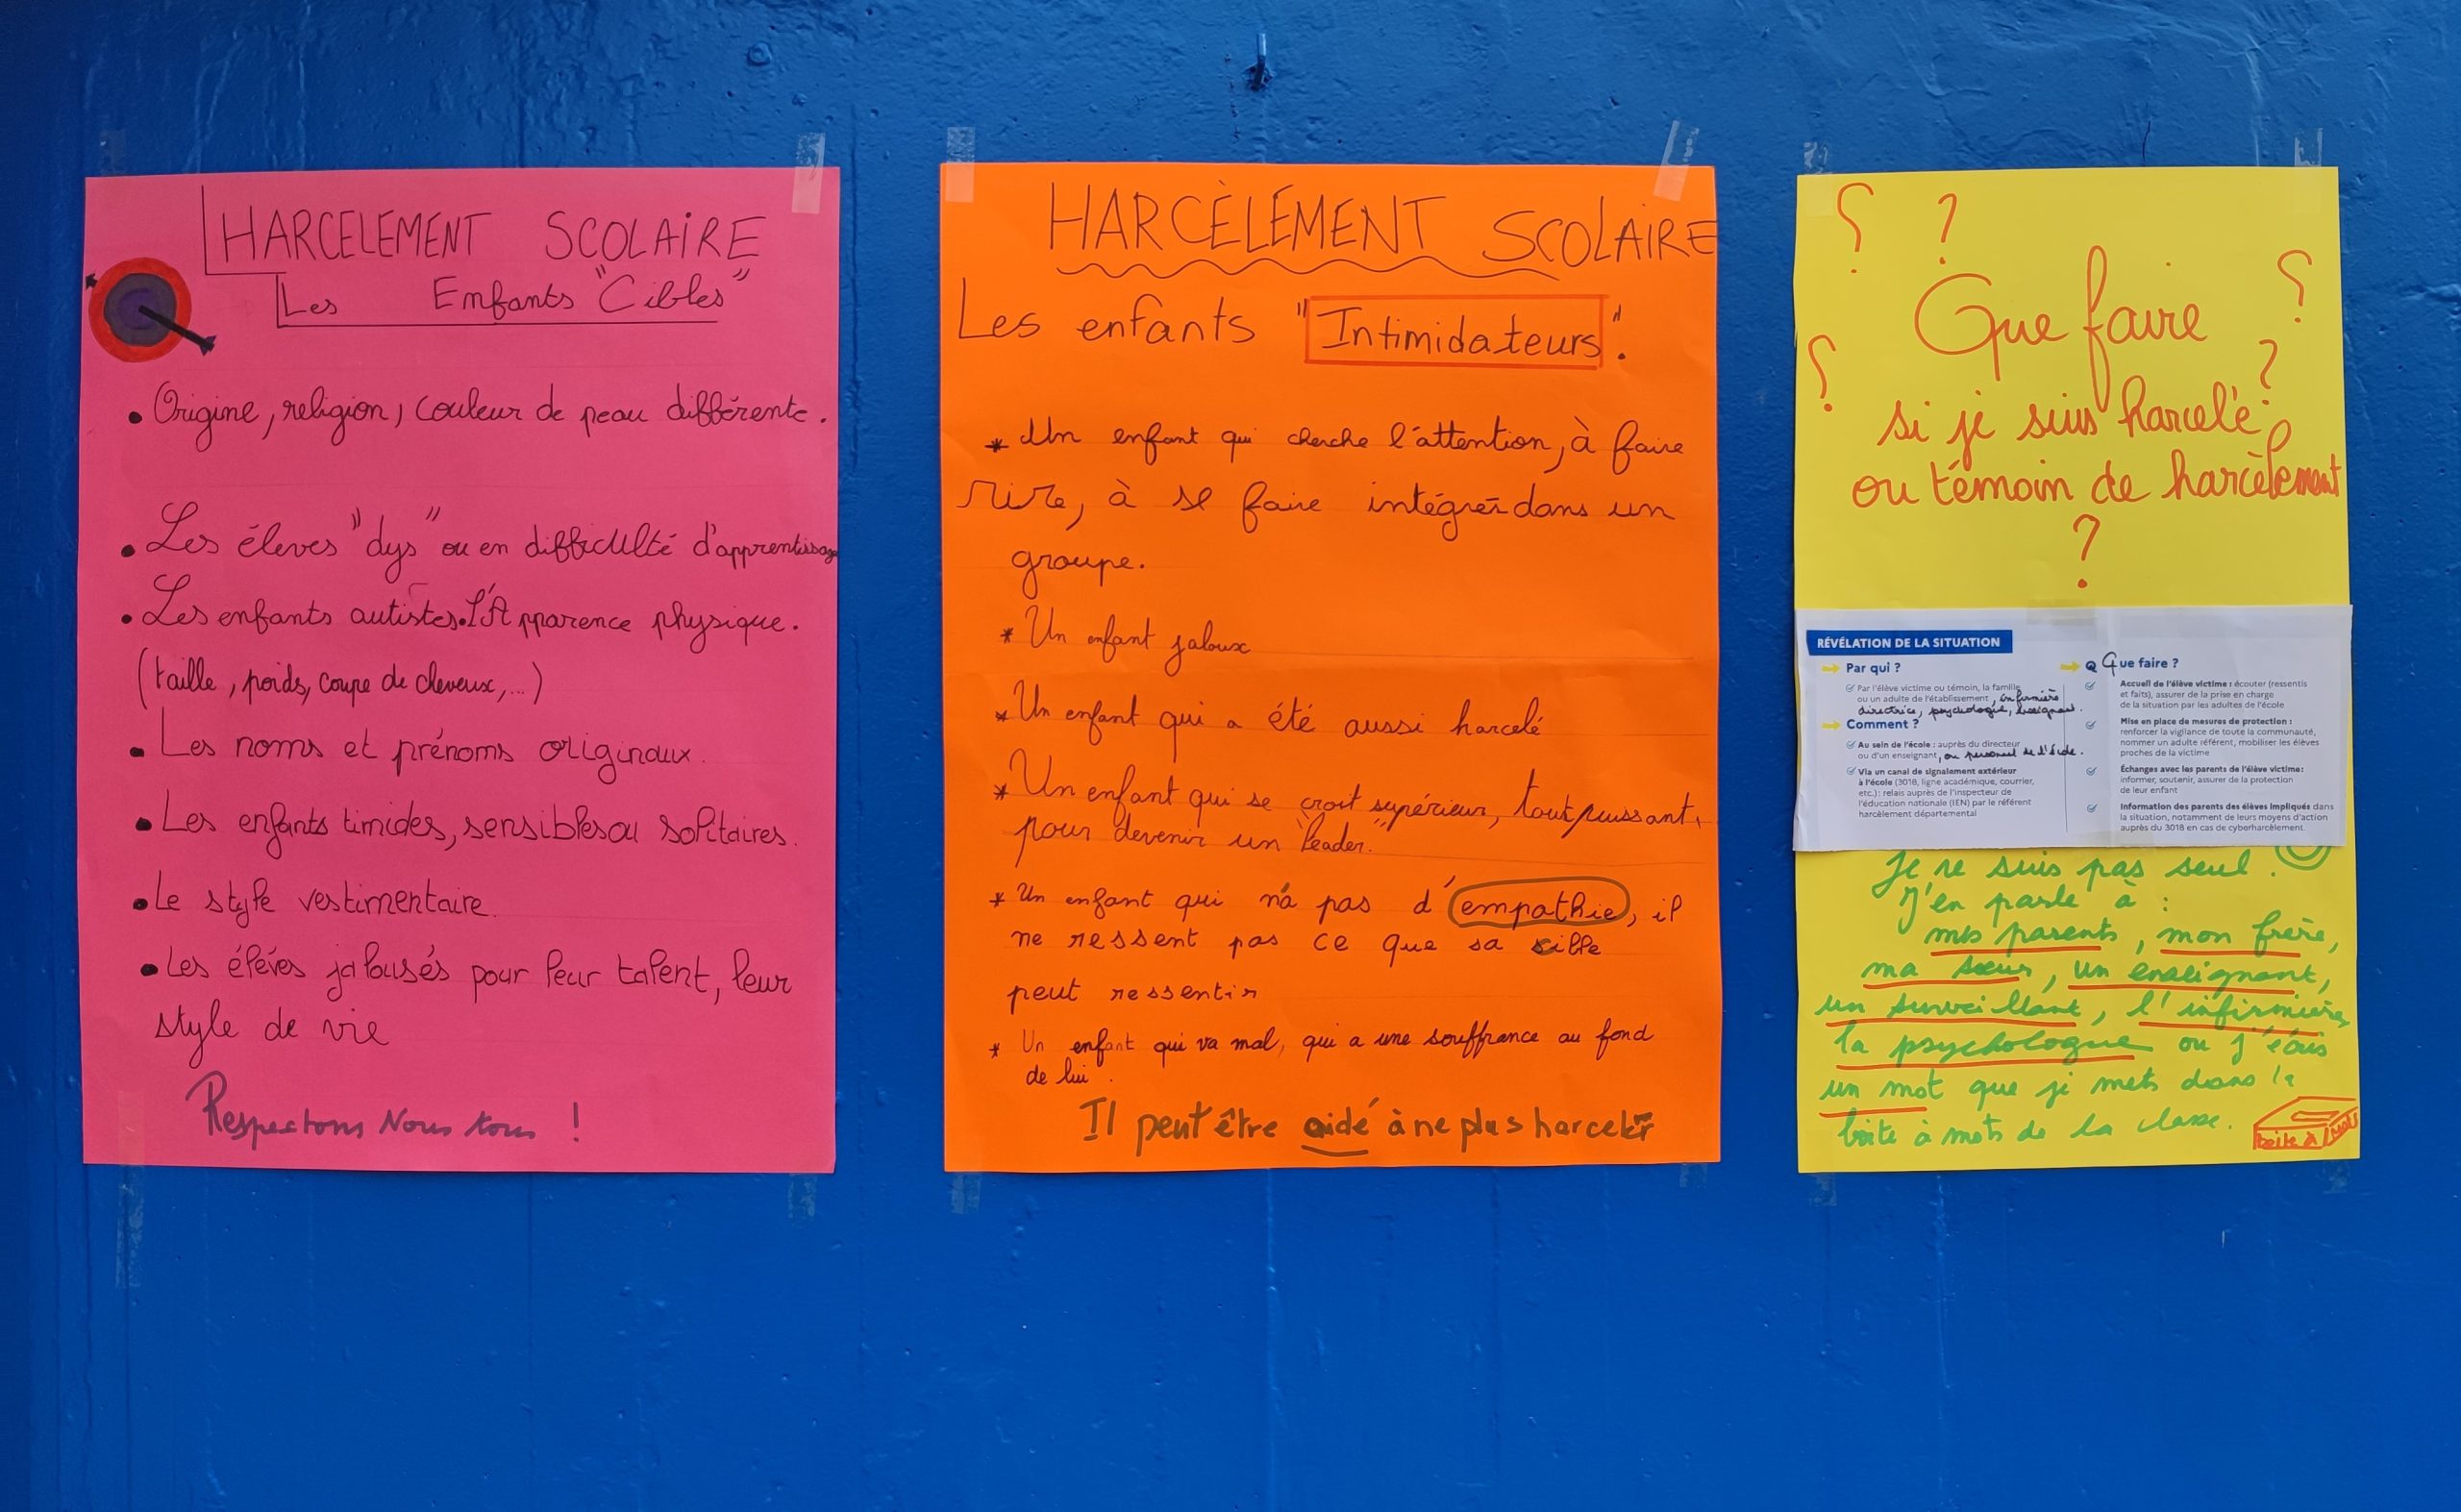 HARCELEMENT SCOLAIRE
Les Enfants "Cibles"
• Origine, religion, couleur de peau différente.
• Les éleves "dys" ou en difficulté d'apprentissage
• Les enfants autistes. L'Apparence physique.
(taille, poids, coupe de cheveux,...)
• Les noms et prénoms originaux.
• Les enfants timides, sensibles ou solitaires.
• Le style vestimentaire.
• Les éléves jalousés pour leur talent, leur
style de vie
Respectons Nous tous !
HARCÈLEMENT SCOLAIRE
Les enfants "Intimidateurs".
* Un enfant qui cherche l'attention, à faire
rire, à se faire intégrer dans un
groupe.
* Un enfant jaloux
* Un enfant qui a été aussi harcelé
* Un enfant qui se croit supérieur, tout puissant,
pour devenir un "leader."
* Un enfant qui n'a pas d'empathie, il
ne ressent pas ce que sa cible
peut ressentir
* Un enfant qui va mal, qui a une souffrance au fond
de lui.
Il peut être aidé à ne plus harceler
? ?
?
Que faire
? ?
si je suis harcelé
ou témoin de harcèlement
?
RÉVÉLATION DE LA SITUATION
Par qui ?
Par l'élève victime ou témoin, la famille
ou un adulte de l'établissement, infirmière
directrice, psychologue, enseignant.
Comment ?
Au sein de l'école : auprès du directeur
ou d'un enseignant, ou personnel de l'école.
Via un canal de signalement extérieur
à l'école (3018, ligne académique, courrier,
etc.) : relais auprès de l'inspecteur de
l'éducation nationale (IEN) par le référent
harcèlement départemental
Q Que faire ?
Accueil de l'élève victime : écouter (ressentis
et faits), assurer de la prise en charge
de la situation par les adultes de l'école
Mise en place de mesures de protection :
renforcer la vigilance de toute la communauté,
nommer un adulte référent, mobiliser les élèves
proches de la victime
Échanges avec les parents de l'élève victime :
informer, soutenir, assurer de la protection
de leur enfant
Information des parents des élèves impliqués dans
la situation, notamment de leurs moyens d'action
auprès du 3018 en cas de cyberharcèlement.
Je ne suis pas seul.
J'en parle à :
mes parents, mon frère,
ma sœur, un enseignant,
un surveillant, l'infirmière,
la psychologue ou j'écris
un mot que je mets dans la
boîte à mots de la classe.
boîte à mots